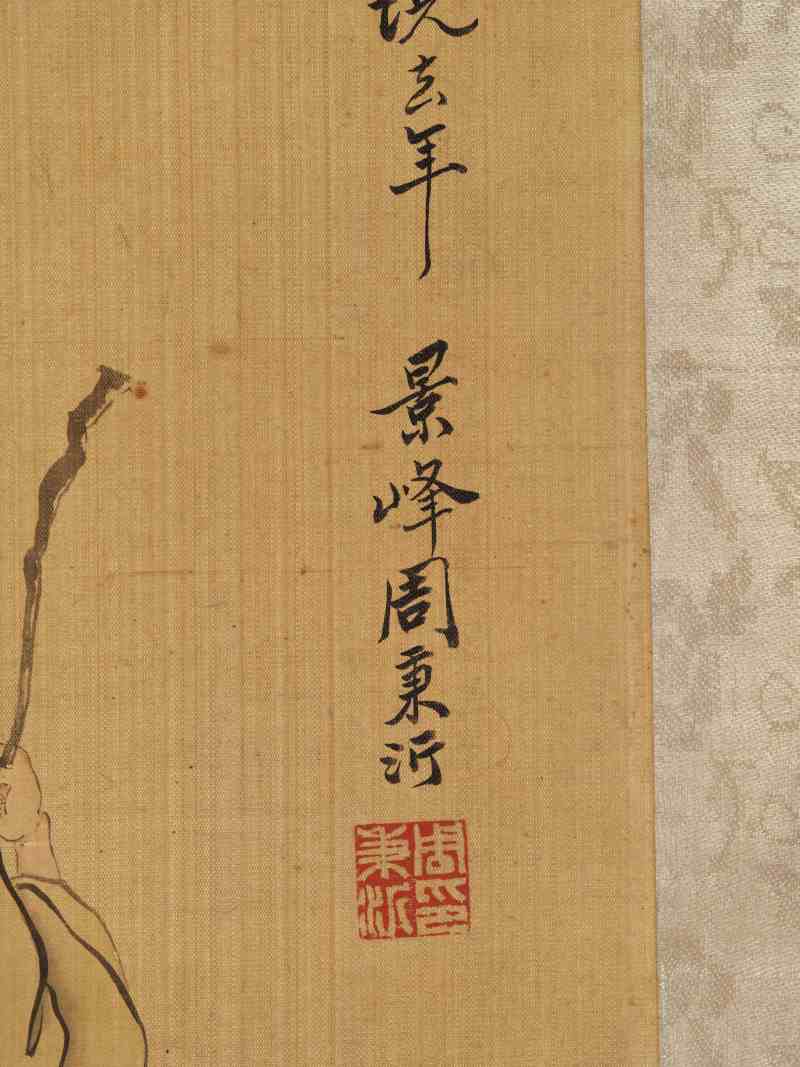 去年 景峰周秉沂
周印
秉沂